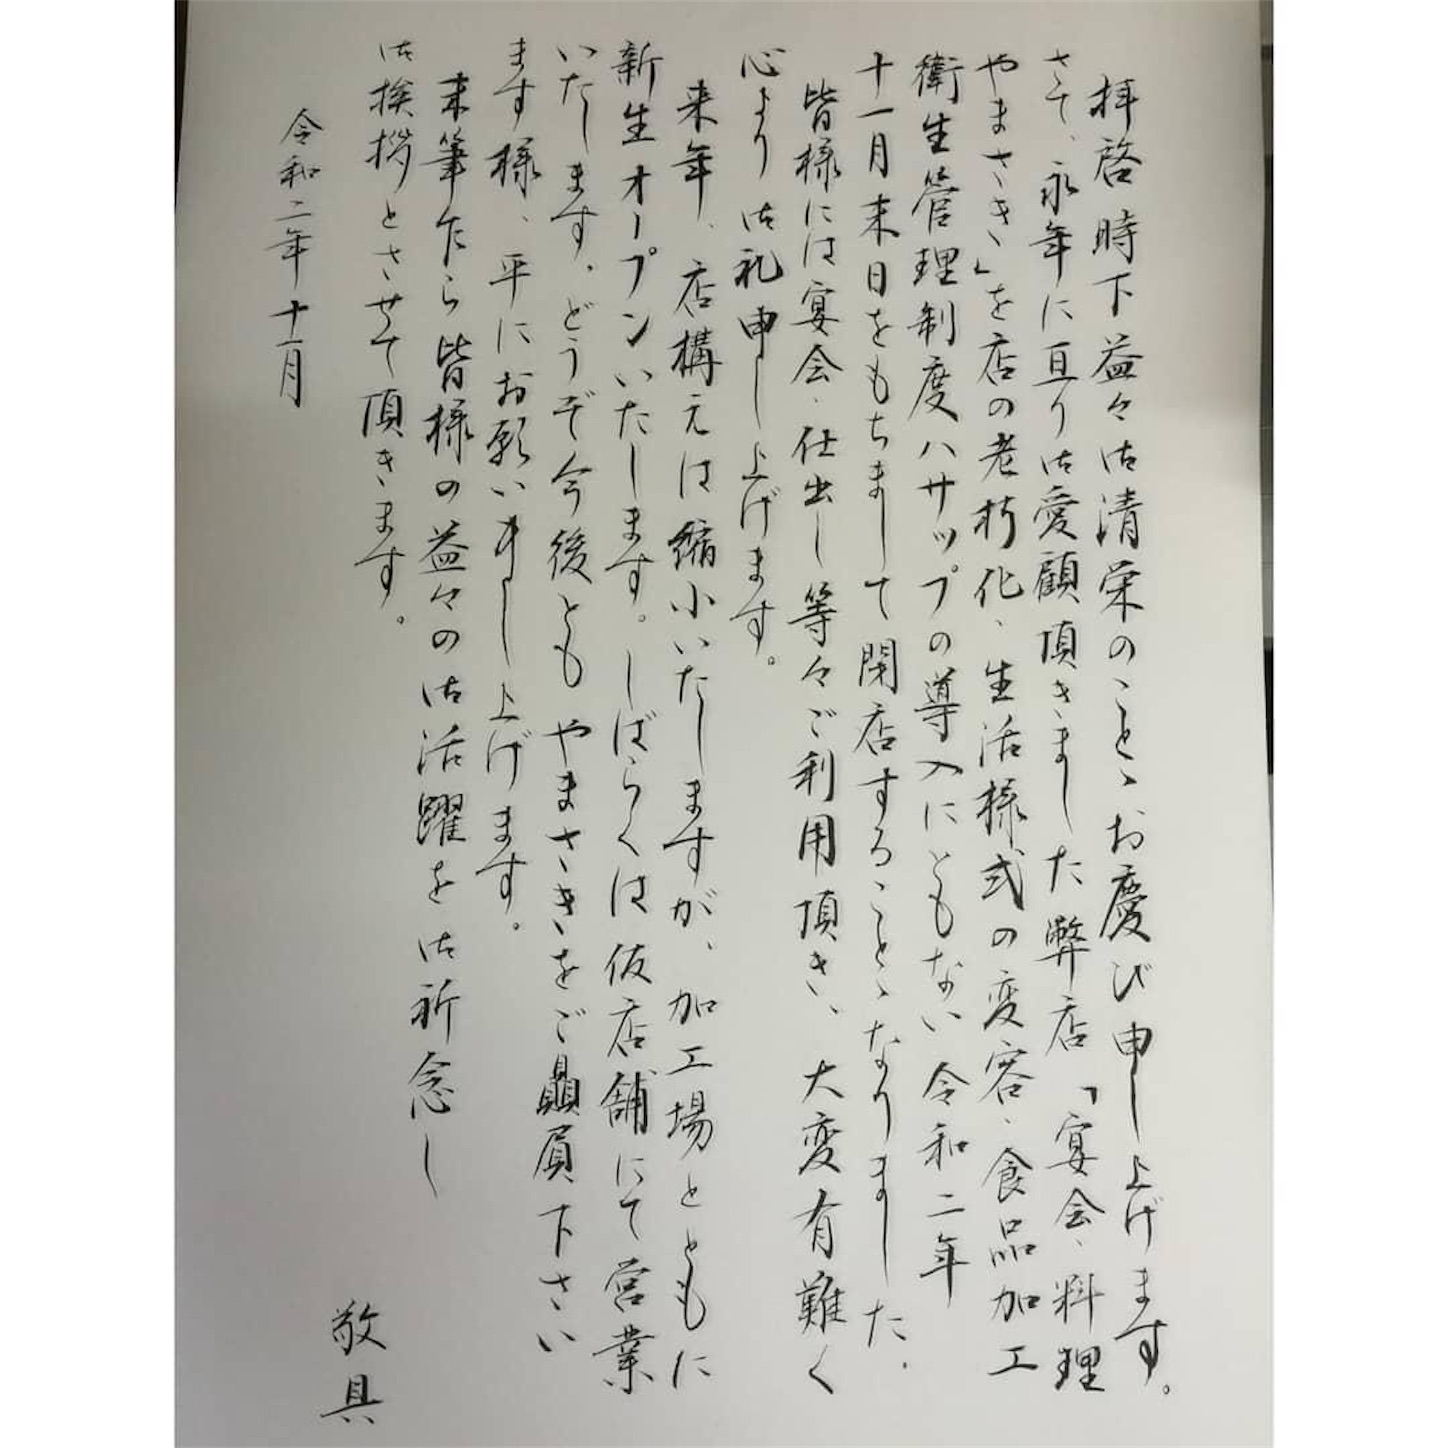 拝啓 時下益々御清栄のこととお慶び申し上げます。
さて、永年に亘り御愛顧頂きました弊店「宴会、料理
やまさき」を店の老朽化、生活様式の変容、食品加工
衛生管理制度ハサップの導入にともない令和二年
十一月末日をもちまして閉店することとなりました。
皆様には宴会、仕出し等々ご利用頂き、大変有難く
心より御礼申し上げます。
来年、店構えは縮小いたしますが、加工場とともに
新生オープンいたします。しばらくは仮店舗にて営業
いたします。どうぞ今後とも やまさきをご贔屓下さい
ます様、平にお願い申し上げます。
末筆乍ら皆様の益々の御活躍を御祈念し
御挨拶とさせて頂きます。
敬具
令和二年十一月